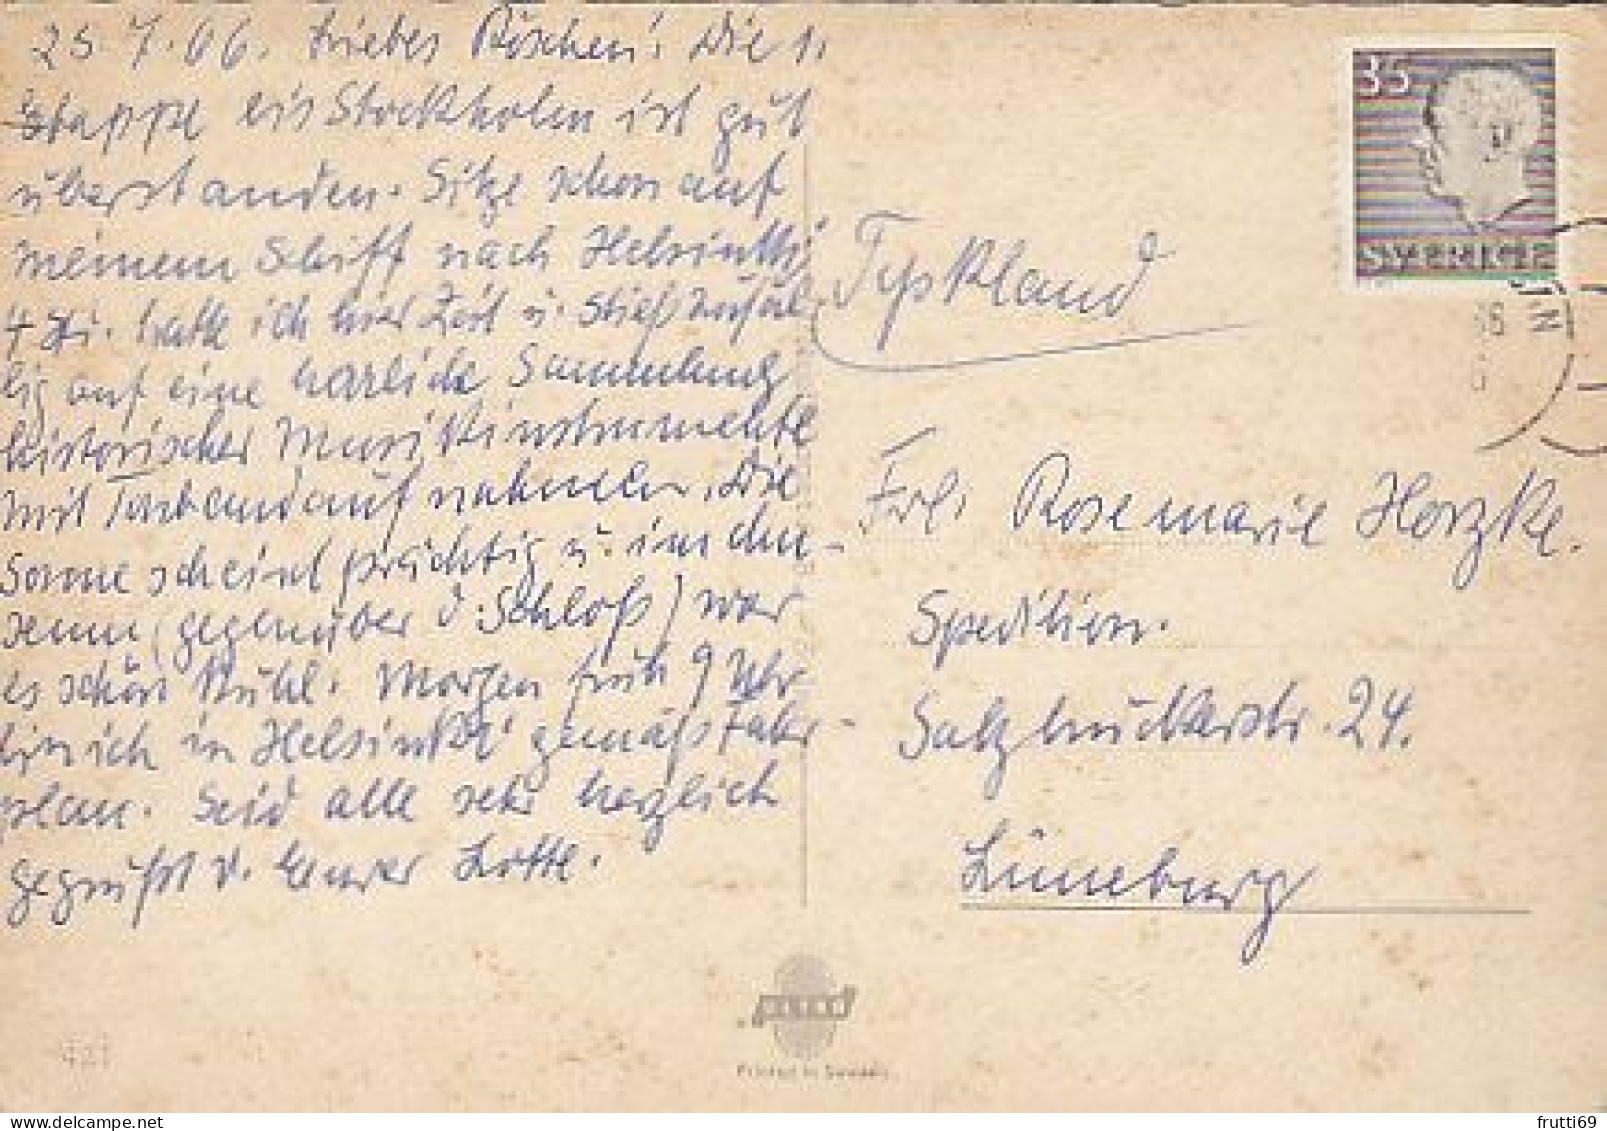 25.7.66. Liebes Röschen! Die 1.
Etappe bis Stockholm ist gut
überstanden. Sitze schon auf
meinem Schiff nach Helsinki!
4 Std. hatte ich hier Zeit u. stieß zufäl-
lig auf eine herrliche Sammlung
historischer Musikinstrumente
mit Tonbandaufnahmen. Die
Sonne scheint prächtig u. in den
(gegenüber d. Schloß) war
es schön kühl. Morgen früh 9 Uhr
bin ich in Helsinki gemäß Fahr-
plan. Seid alle sehr herzlich
gegrüßt v. Eurer Lotte.
Tyskland
Frl. Rosemarie Horzke.
Spedition.
Salzbrückerstr. 24.
Lüneburg
35
SVERIGE
66
421
ULTRA
Printed in Sweden
frutti69